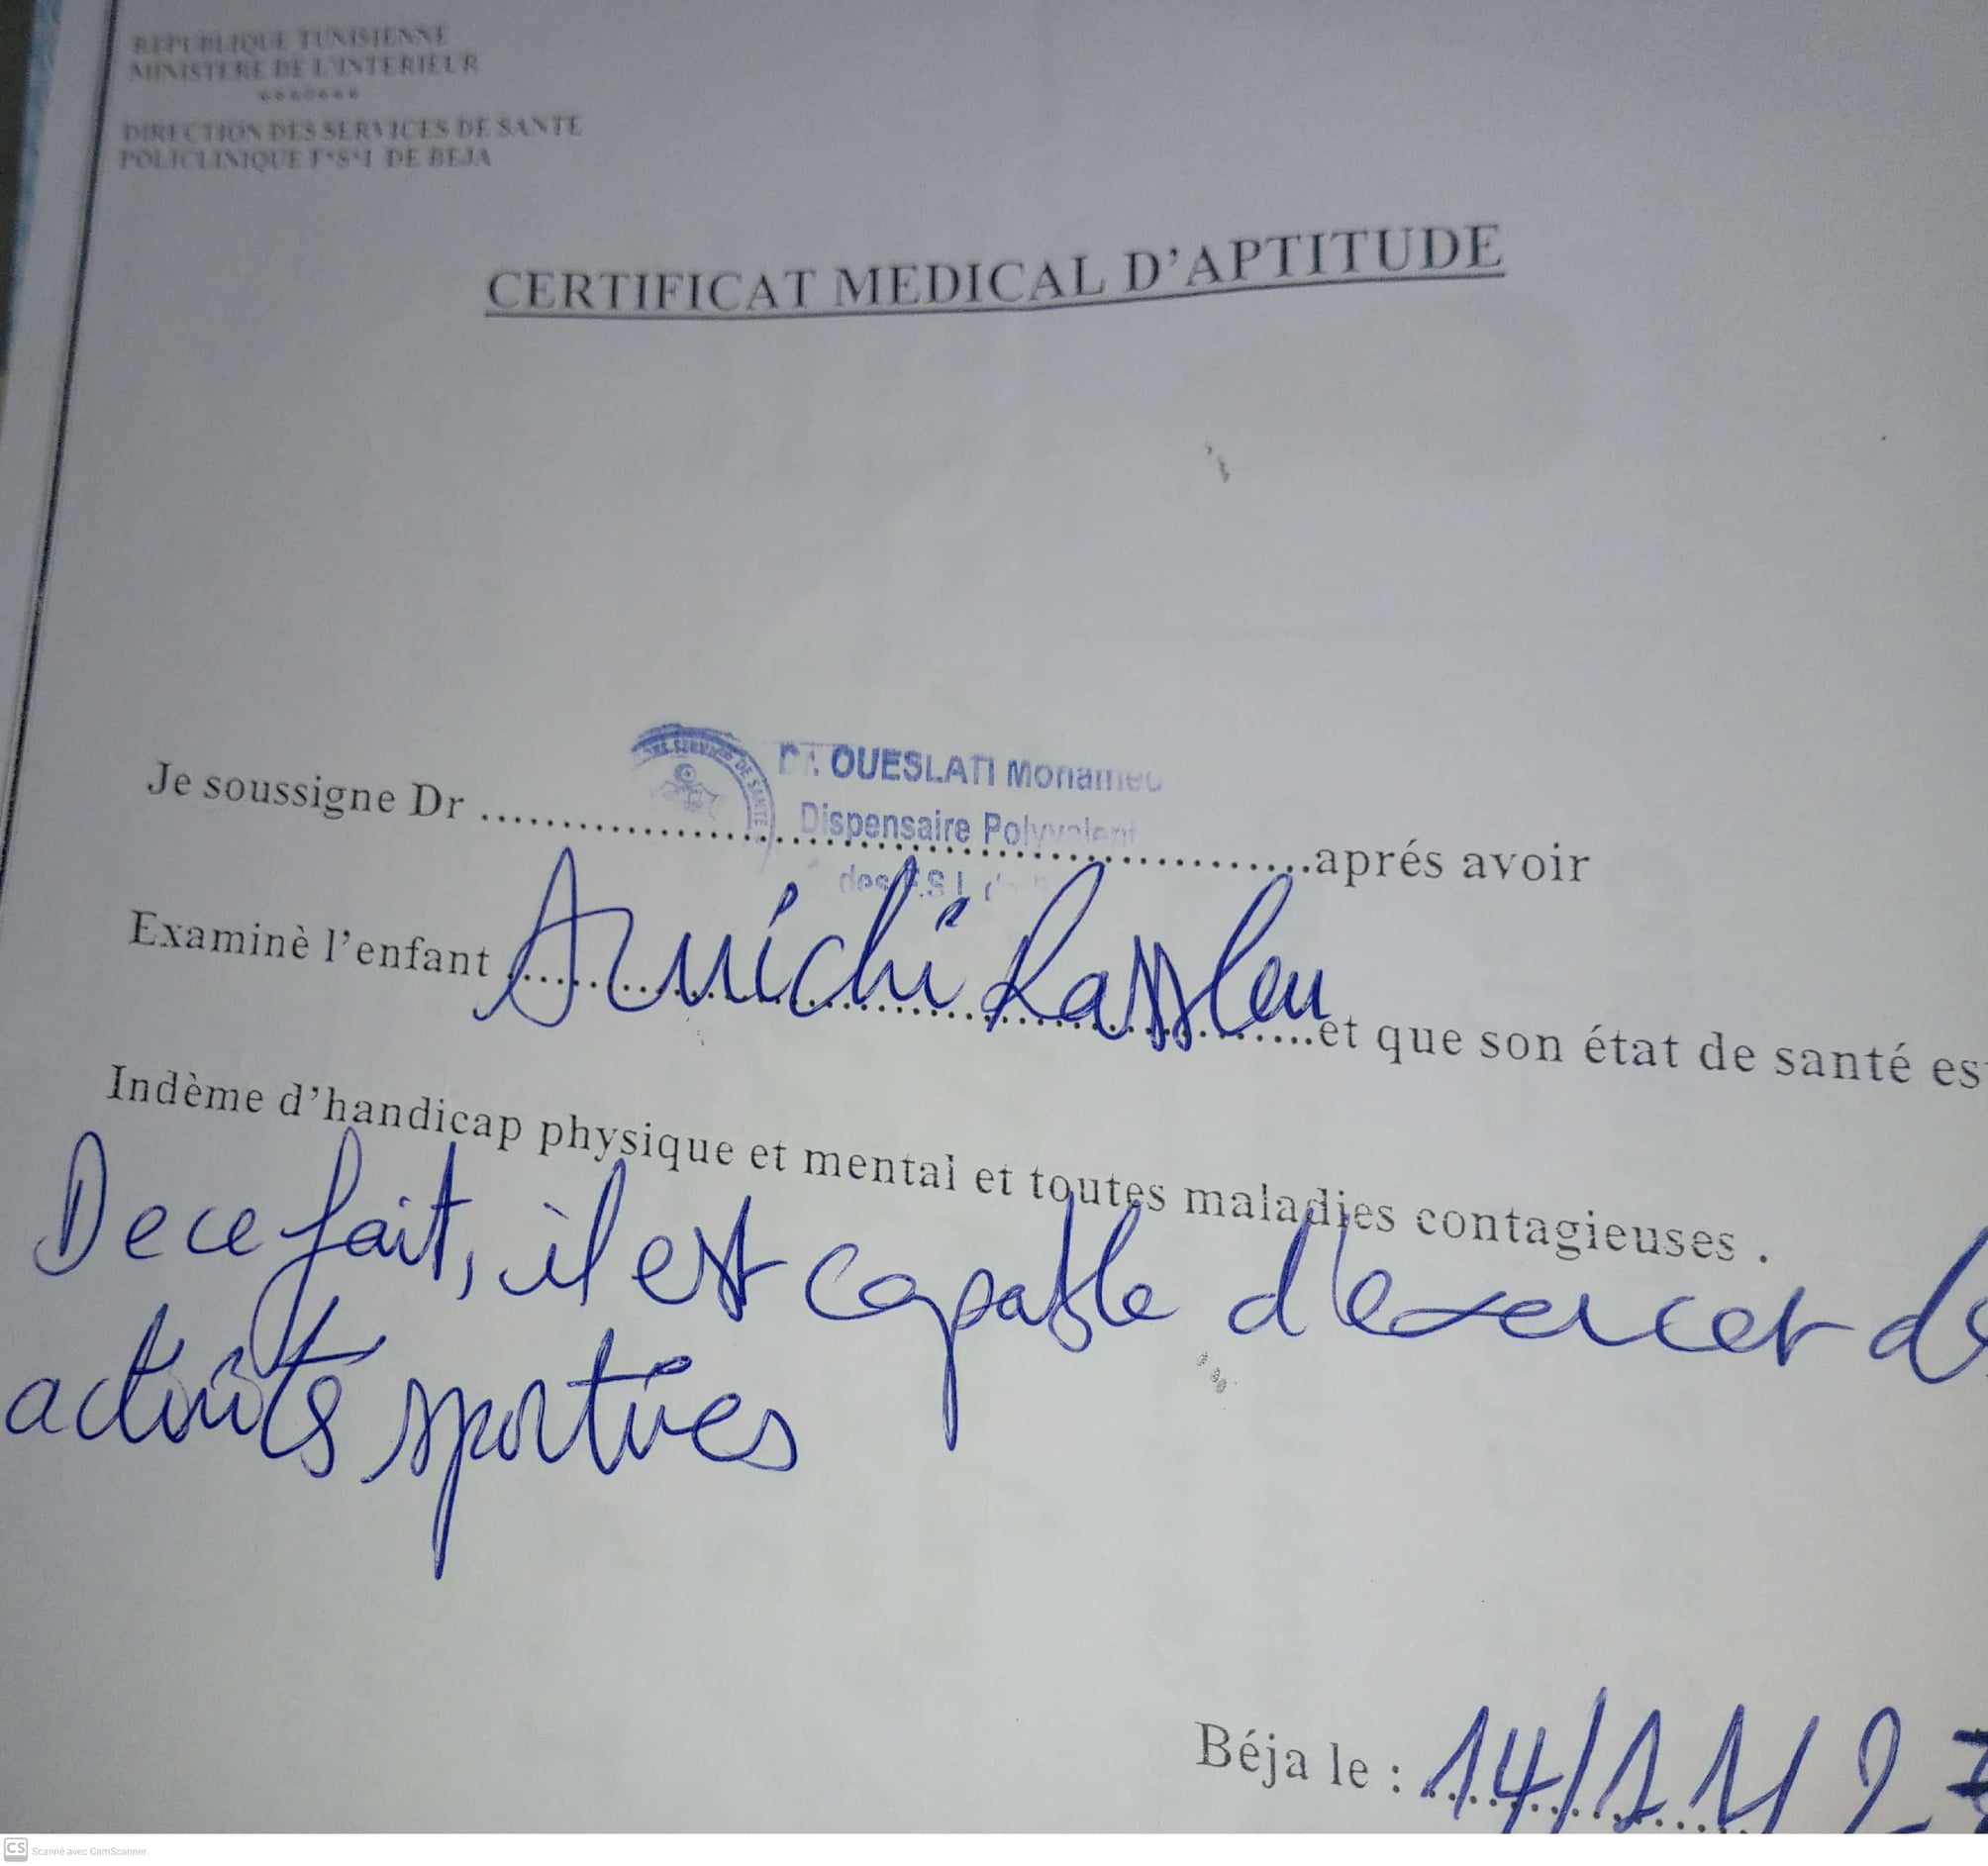 REPUBLIQUE TUNISIENNE
MINISTERE DE L'INTERIEUR
*******
DIRECTION DES SERVICES DE SANTE
POLICLINIQUE F*S*I DE BEJA
CERTIFICAT MEDICAL D'APTITUDE
Dr. OUESLATI Mohamed
Dispensaire Polyvalent
des F.S.I.
SERVICES DE SANTE
Je soussigne Dr ........................................ aprés avoir
Examinè l'enfant ........................................ et que son état de santé es
Indème d'handicap physique et mental et toutes maladies contagieuses .
De ce fait, il est capable d'exercer de
activités sportives
Béja le : 14/11/2
CS Scanné avec CamScanner